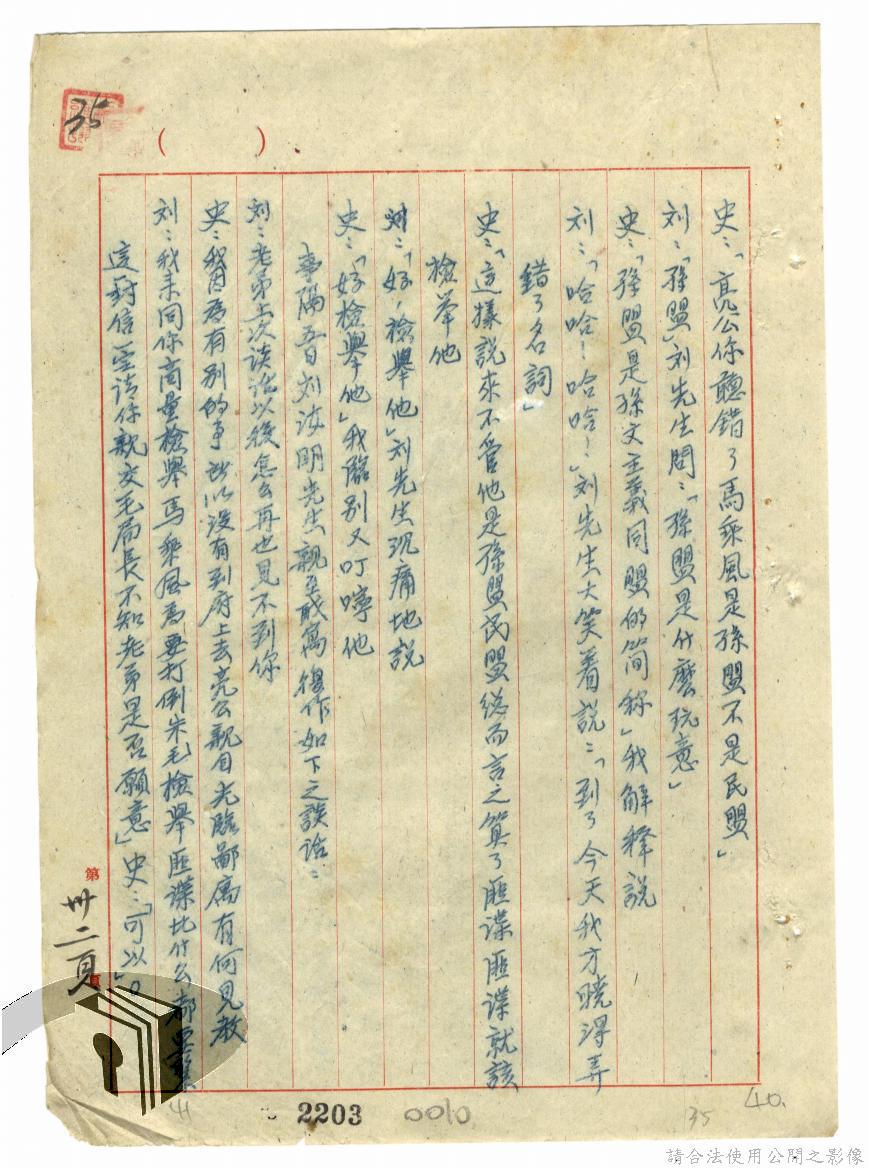 35
( )
史:「亮公你聽錯了馬乘風是孫盟不是民盟」
刘:「孫盟」刘先生問:「孫盟是什麼玩意」
史:「孫盟是孫文主義同盟的簡称」我解釋説
刘:「哈哈!哈哈!」刘先生大笑着説:「到了今天我方曉得弄
錯了名詞」
史:「這樣說來不管他是孫盟民盟總而言之算了匪諜匪諜就該
檢举他
刘:「好,檢舉他」刘先生沉痛地説
史:「好檢舉他」我臨別又叮嚀他
事隔五日刘海明先生親至敝寓復作如下之談話:
刘:老弟上次談話以後怎么再也見不到你
史:我因為有別的事所以没有到府上去亮公親自光臨鄙寓有何見教
刘:我来同你商量檢舉馬乘風為要打倒朱毛檢舉匪諜比什么都要緊
這封信並請你親交毛局長不知老弟是否願意」史:「可以」。
第卅二頁
2203
0010
35
40.
請合法使用公開之影像